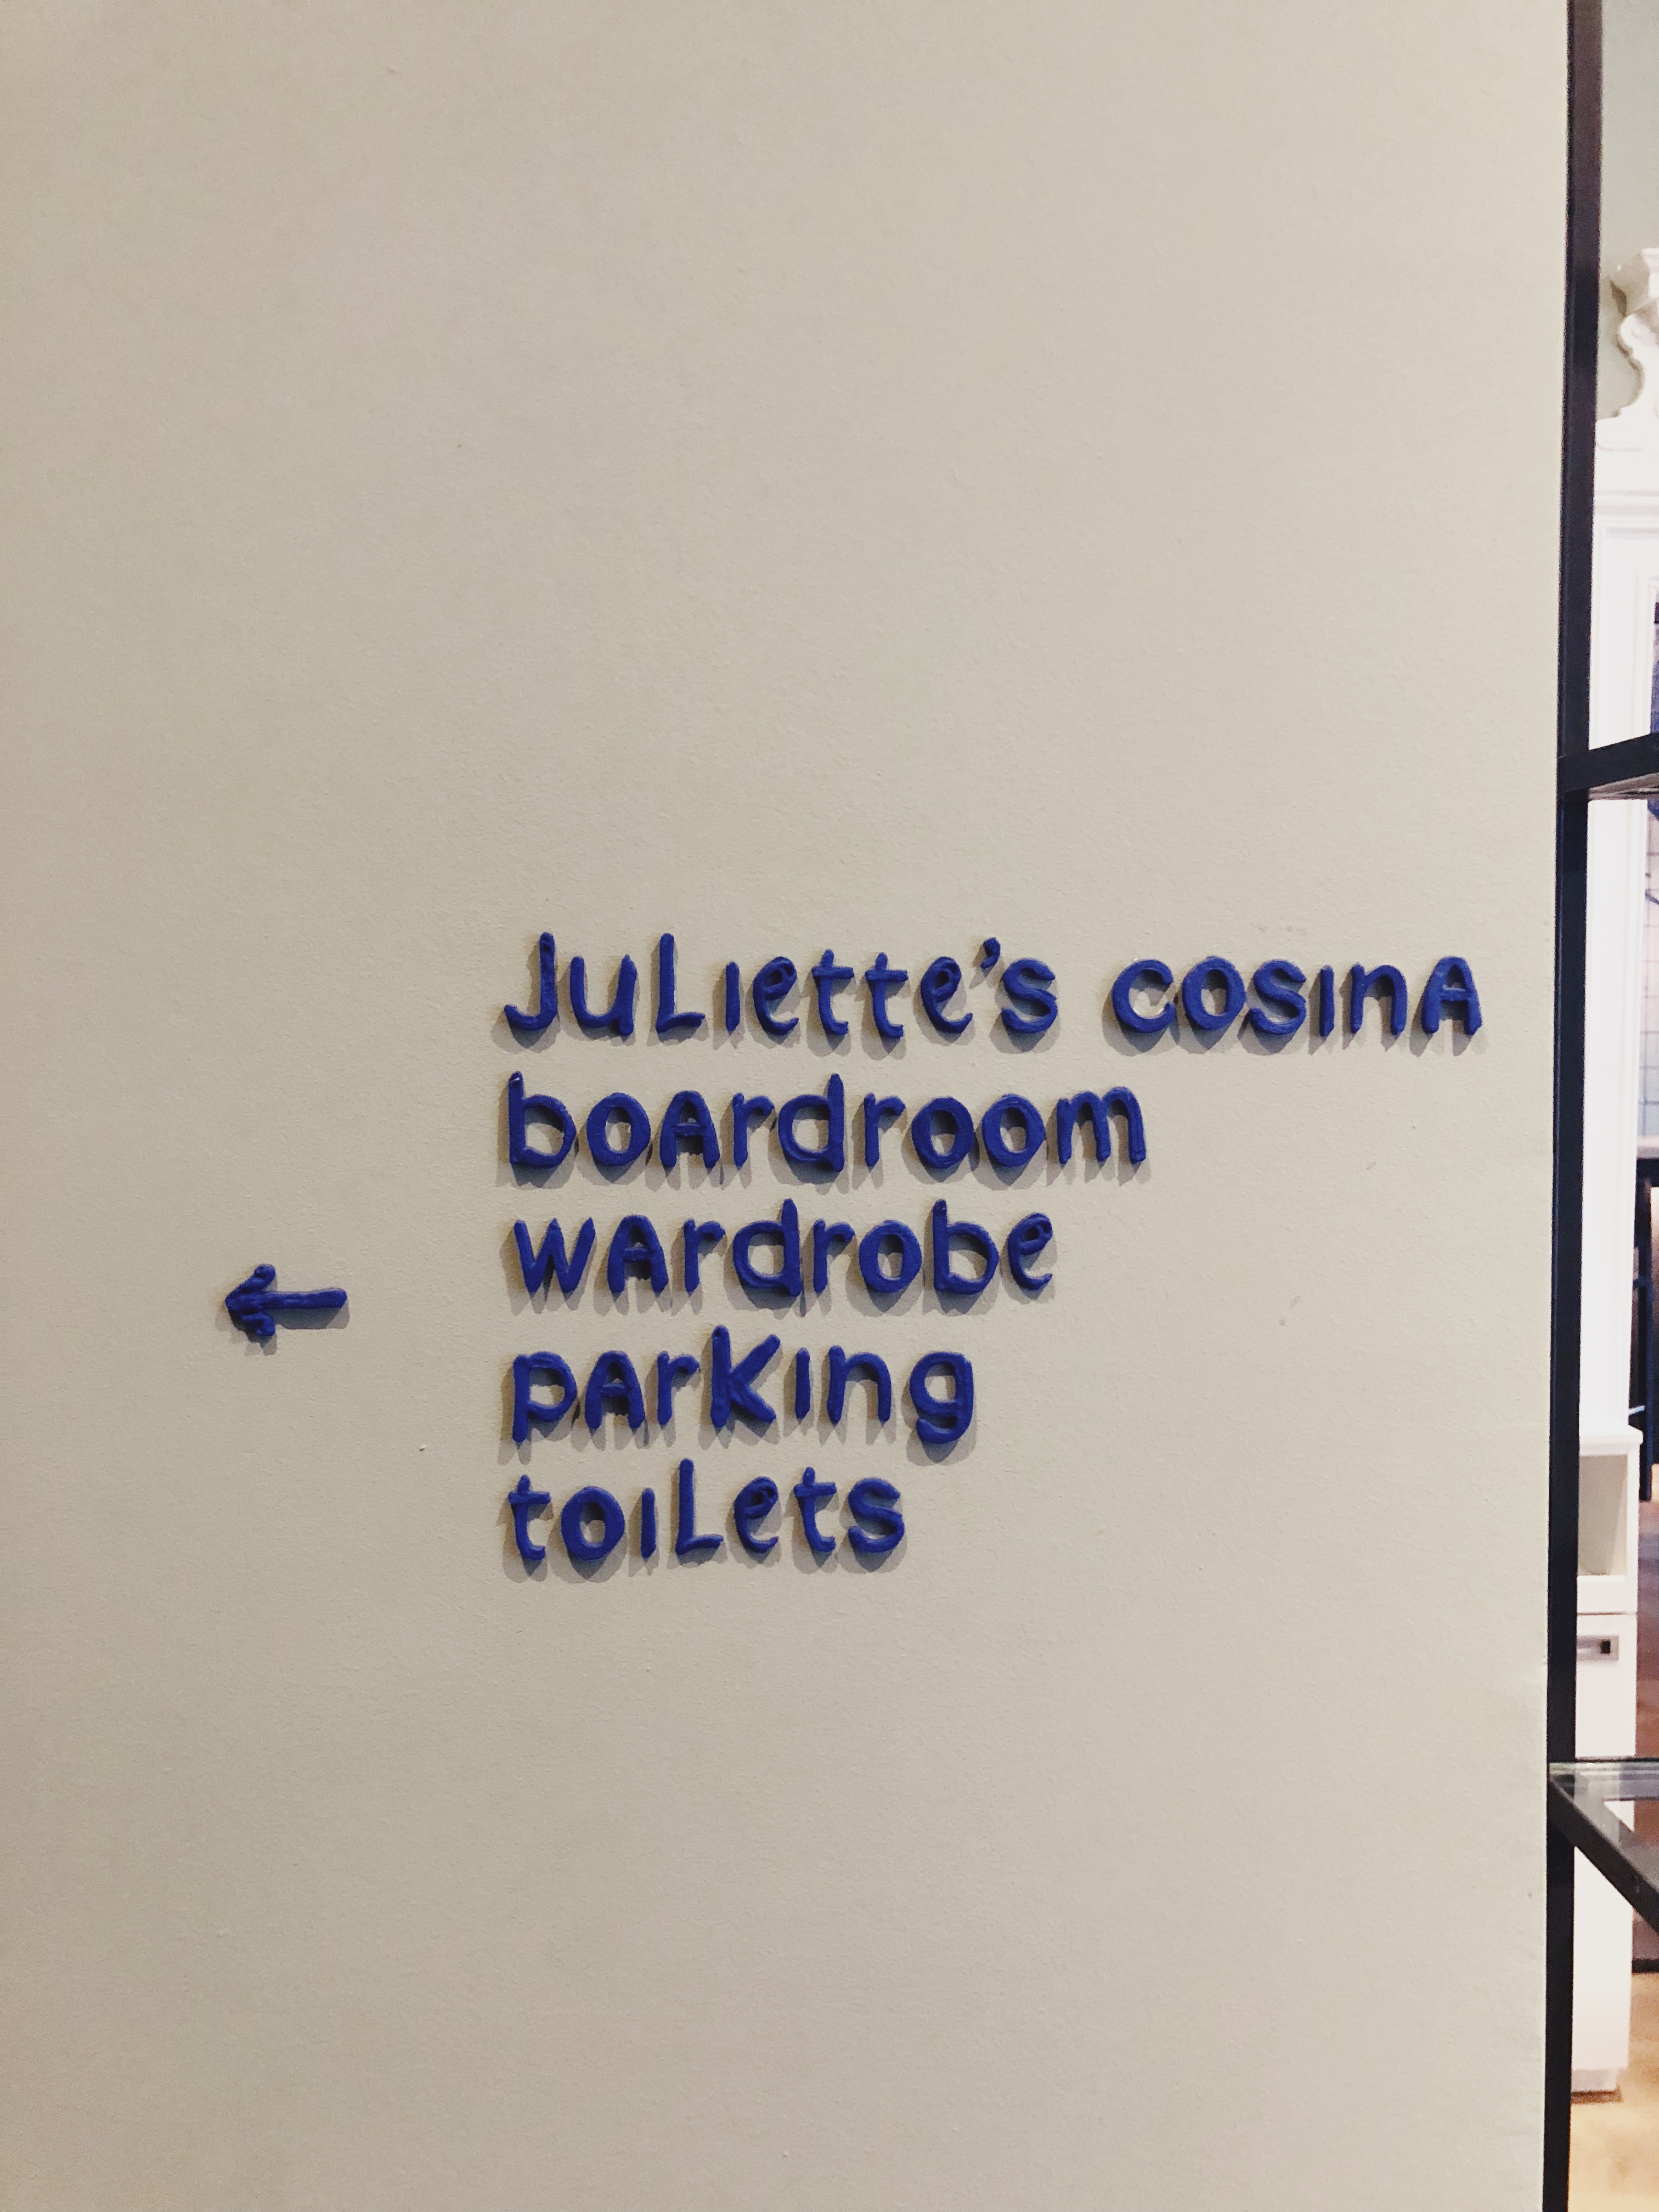 JuLiette's cosinA
boArdroom
wArdrobe
pArKing
toiLets